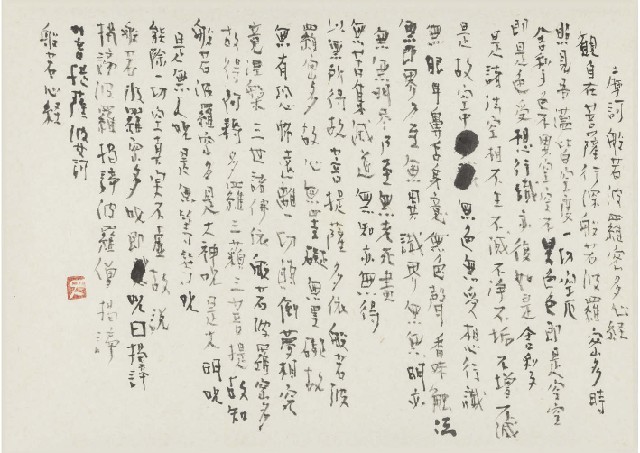 摩訶般若波羅蜜多心経
観自在菩薩行深般若波羅蜜多時
照見五蘊皆空度一切空厄
舎利子色不異空空不異色色即是空空
即是色受想行識亦復如是舎利子
是諸法空相不生不滅不浄不垢不增不減
是故空中無色無受相心行識
無眼耳鼻舌身意無色聲香味觸法
無眼界乃至無意識界無無明亦
無無明尽乃至無老死盡
無苦集滅道無知亦無得
以無所得故菩提薩多依般若波
羅蜜多故心無罣礙無罣礙故
無有恐怖遠離一切顛倒夢相究
竟涅槃三世諸佛依般若波羅蜜多
故得阿耨多羅三藐三菩提故知
般若波羅蜜多是大神呪是大明呪
是無上呪是無等等呪
能除一切空真実不虚故説
般若波羅蜜多呪即呪曰揭諦
揭諦波羅揭諦波羅僧揭諦
菩提薩婆訶
般若心経